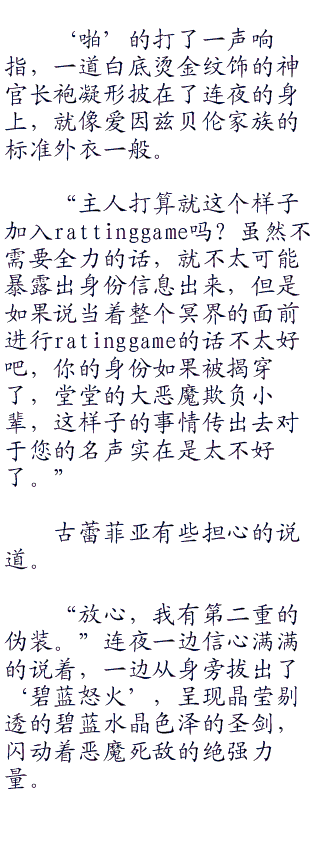 ‘啪’的打了一声响
指，一道白底烫金纹饰的神
官长袍凝形披在了连夜的身
上，就像爱因兹贝伦家族的
标准外衣一般。
“主人打算就这个样子
加入rattinggame吗？虽然不
需要全力的话，就不太可能
暴露出身份信息出来，但是
如果说当着整个冥界的面前
进行ratinggame的话不太好
吧，你的身份如果被揭穿
了，堂堂的大恶魔欺负小
辈，这样子的事情传出去对
于您的名声实在是太不好
了。”
古蕾菲亚有些担心的说
道。
“放心，我有第二重的
伪装。”连夜一边信心满满
的说着，一边从身旁拔出了
‘碧蓝怒火’，呈现晶莹剔
透的碧蓝水晶色泽的圣剑，
闪动着恶魔死敌的绝强力
量。